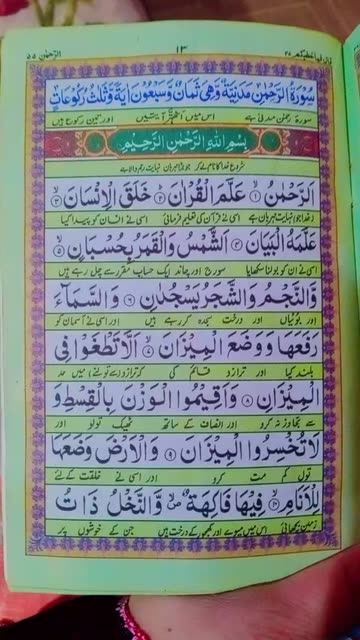 الرحمٰن ٥٥
١٣
قال فما خطبكم ٢٧
سُوْرَةُ الرَّحْمٰنِ مَدَنِيَّةٌ وَّهِيَ ثَمَانٌ وَّسَبْعُوْنَ اٰيَةً وَّثَلٰثُ رُكُوْعَاتٍ
سورۃ رحمٰن مدنی ہے اس میں اٹھتر آیتیں اور تین رکوع ہیں
بِسْمِ اللّٰهِ الرَّحْمٰنِ الرَّحِيْمِ
شروع خدا کا نام لے کر جو بڑا مہربان نہایت رحم والا ہے
اَلرَّحْمٰنُ ۝١ عَلَّمَ الْقُرْاٰنَ ۝٢ خَلَقَ الْاِنْسَانَ ۝٣
(خدا جو) نہایت مہربان ہے اسی نے قرآن کی تعلیم فرمائی اسی نے انسان کو پیدا کیا
عَلَّمَهُ الْبَيَانَ ۝٤ اَلشَّمْسُ وَالْقَمَرُ بِحُسْبَانٍ ۝٥
اسی نے اس کو بولنا سکھایا سورج اور چاند ایک حساب مقرر سے چل رہے ہیں
وَّالنَّجْمُ وَالشَّجَرُ يَسْجُدٰنِ ۝٦ وَالسَّمَآءَ
اور بوٹیاں اور درخت سجدہ کر رہے ہیں اور اسی نے آسمان کو
رَفَعَهَا وَوَضَعَ الْمِيْزَانَ ۝٧ اَلَّا تَطْغَوْا فِي
بلند کیا اور ترازو قائم کی کہ ترازو (سے تولنے) میں حد
الْمِيْزَانِ ۝٨ وَاَقِيْمُوا الْوَزْنَ بِالْقِسْطِ وَ
سے تجاوز نہ کرو اور انصاف کے ساتھ ٹھیک تولو اور
لَا تُخْسِرُوا الْمِيْزَانَ ۝٩ وَالْاَرْضَ وَضَعَهَا
تول کم مت کرو اور اسی نے خلقت کے لئے
لِلْاَنَامِ ۝١٠ فِيْهَا فَاكِهَةٌ وَّالنَّخْلُ ذَاتُ
زمین بچھائی اس میں میوے اور کھجور کے درخت ہیں جن کے خوشوں پر